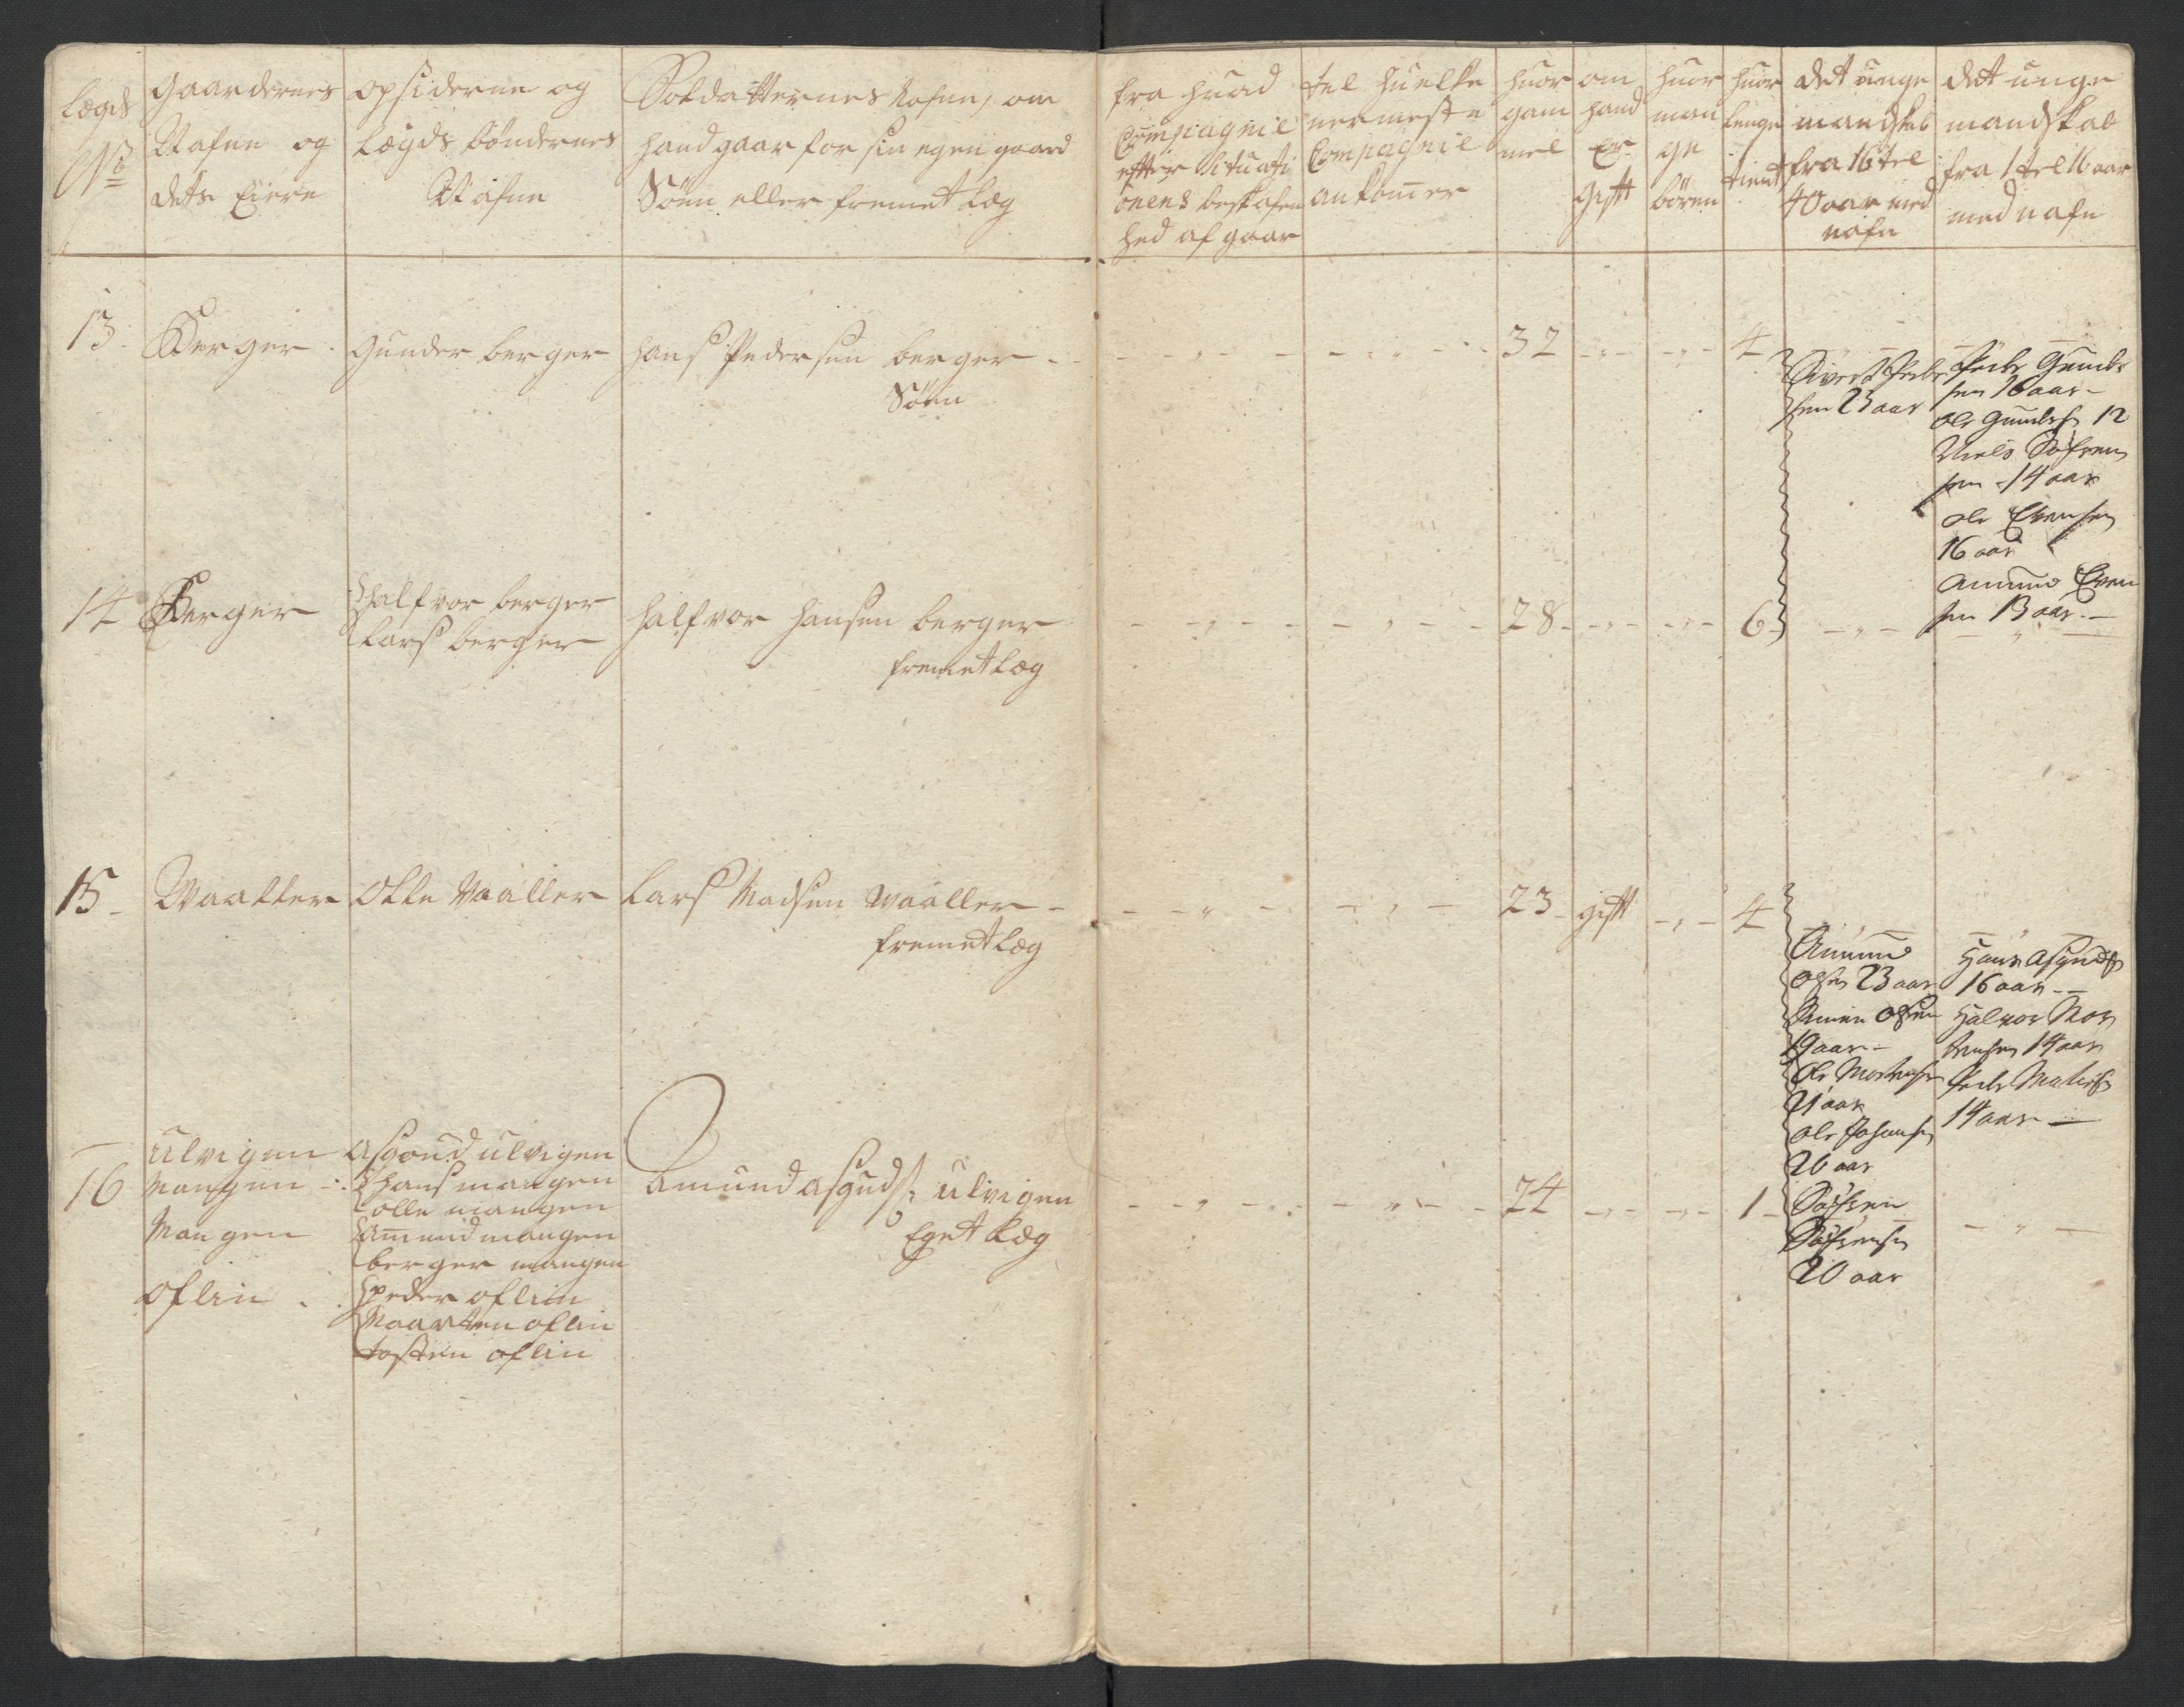 Lægds
No
Gaardernes
Nafne og
dets Eiere
opsiderne og
Lægds bøndernes
Nafne
Soldatternes Nafne, om
hand gaar for sin egen gaard
Søen eller fremet Læg
fra huad
Compagnie
effter situati
onens beskafen
hed afgaar
tel huelke
nermeste
Compagnie
ankomer
huor
gam
mel
om
hand
Er
gift
huor
man
ge
børen
huor
lenge
tient
det unge
mandskab
fra 16 tel
40 aar med
nafn
det unge
mandskab
fra 1 tel 16 aar
med nafn
13. Berger. Gunder berger Hans Pedersen berger - 32 4
Søen
Sivert Peder
sen 23 aar
Peder Gunder
sen 16 aar
Ole Gunders. 12
Niels Søfren
sen 14 aar
Ole Evensen
16 aar
Amund Even
sen 13 aar.
14 Berger Halfvor berger
Lars berger
Halfvor Hansen berger 28 6
fremet Læg
15 Waaller Olle Vaaller Lars Madsen Waaller - 23 gift 4
fremet Læg
Amund
Olsen 23 aar
Simen Olsen
19 aar
Ole Mortensen
21 aar
Ole Johansen
26 aar
Søfren
Søfrensen
20 aar
Hans Asgudss
16 aar
Halvor Mor
tensen 14 aar
Peder
14 aar
16
ulvigen
Mangen
Mangen
oflin
Asgoud ulvigen
Hans mangen
olle mangen
Amund mangen
berger mangen
Peder oflin
Maarten oflin
tosten oflin
Amund Asguds: ulvigen 24 1
Eget Læg